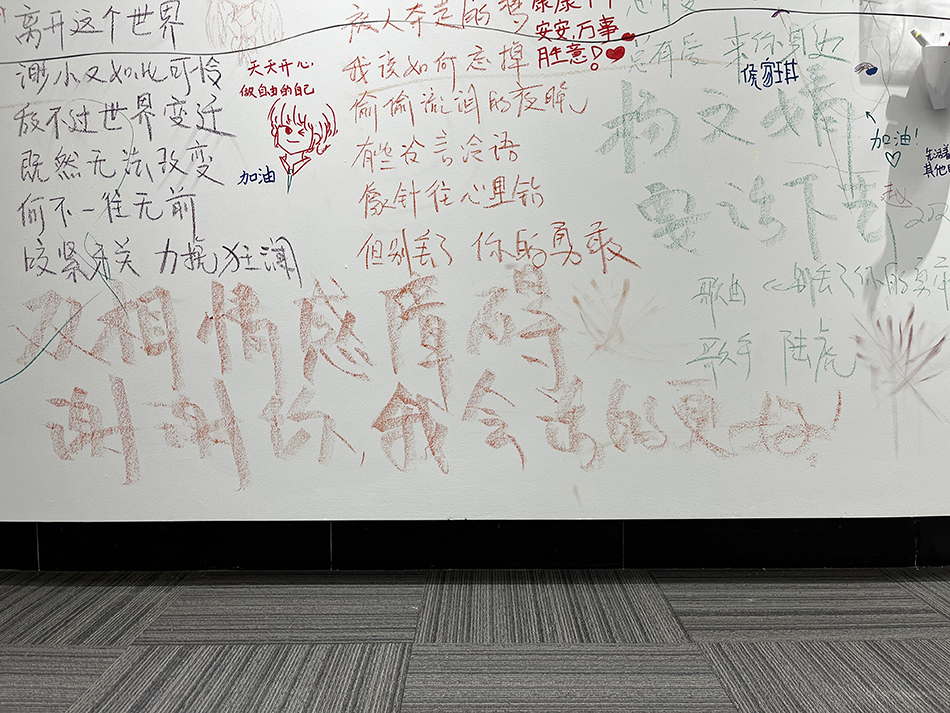 离开这个世界
渺小又如此可怜
放不过世界变迁
既然无法改变
何不一往无前
咬紧牙关 力挽狂澜
天天开心.
做自由的自己
加油
敌人奔走的
我该如何忘掉
偷偷流泪的夜晚
有些冷言冷语
像针往心里钻
但别丢了 你的勇敢
康康
安安,万事
胜意!
总有爱
来你身边
侯家琪
杨文婧
要活下去
加油!
先活着
其他
歌曲 《别丢了你的勇敢
歌手 陆虎
双相情感障碍
谢谢你,我会走的更好!